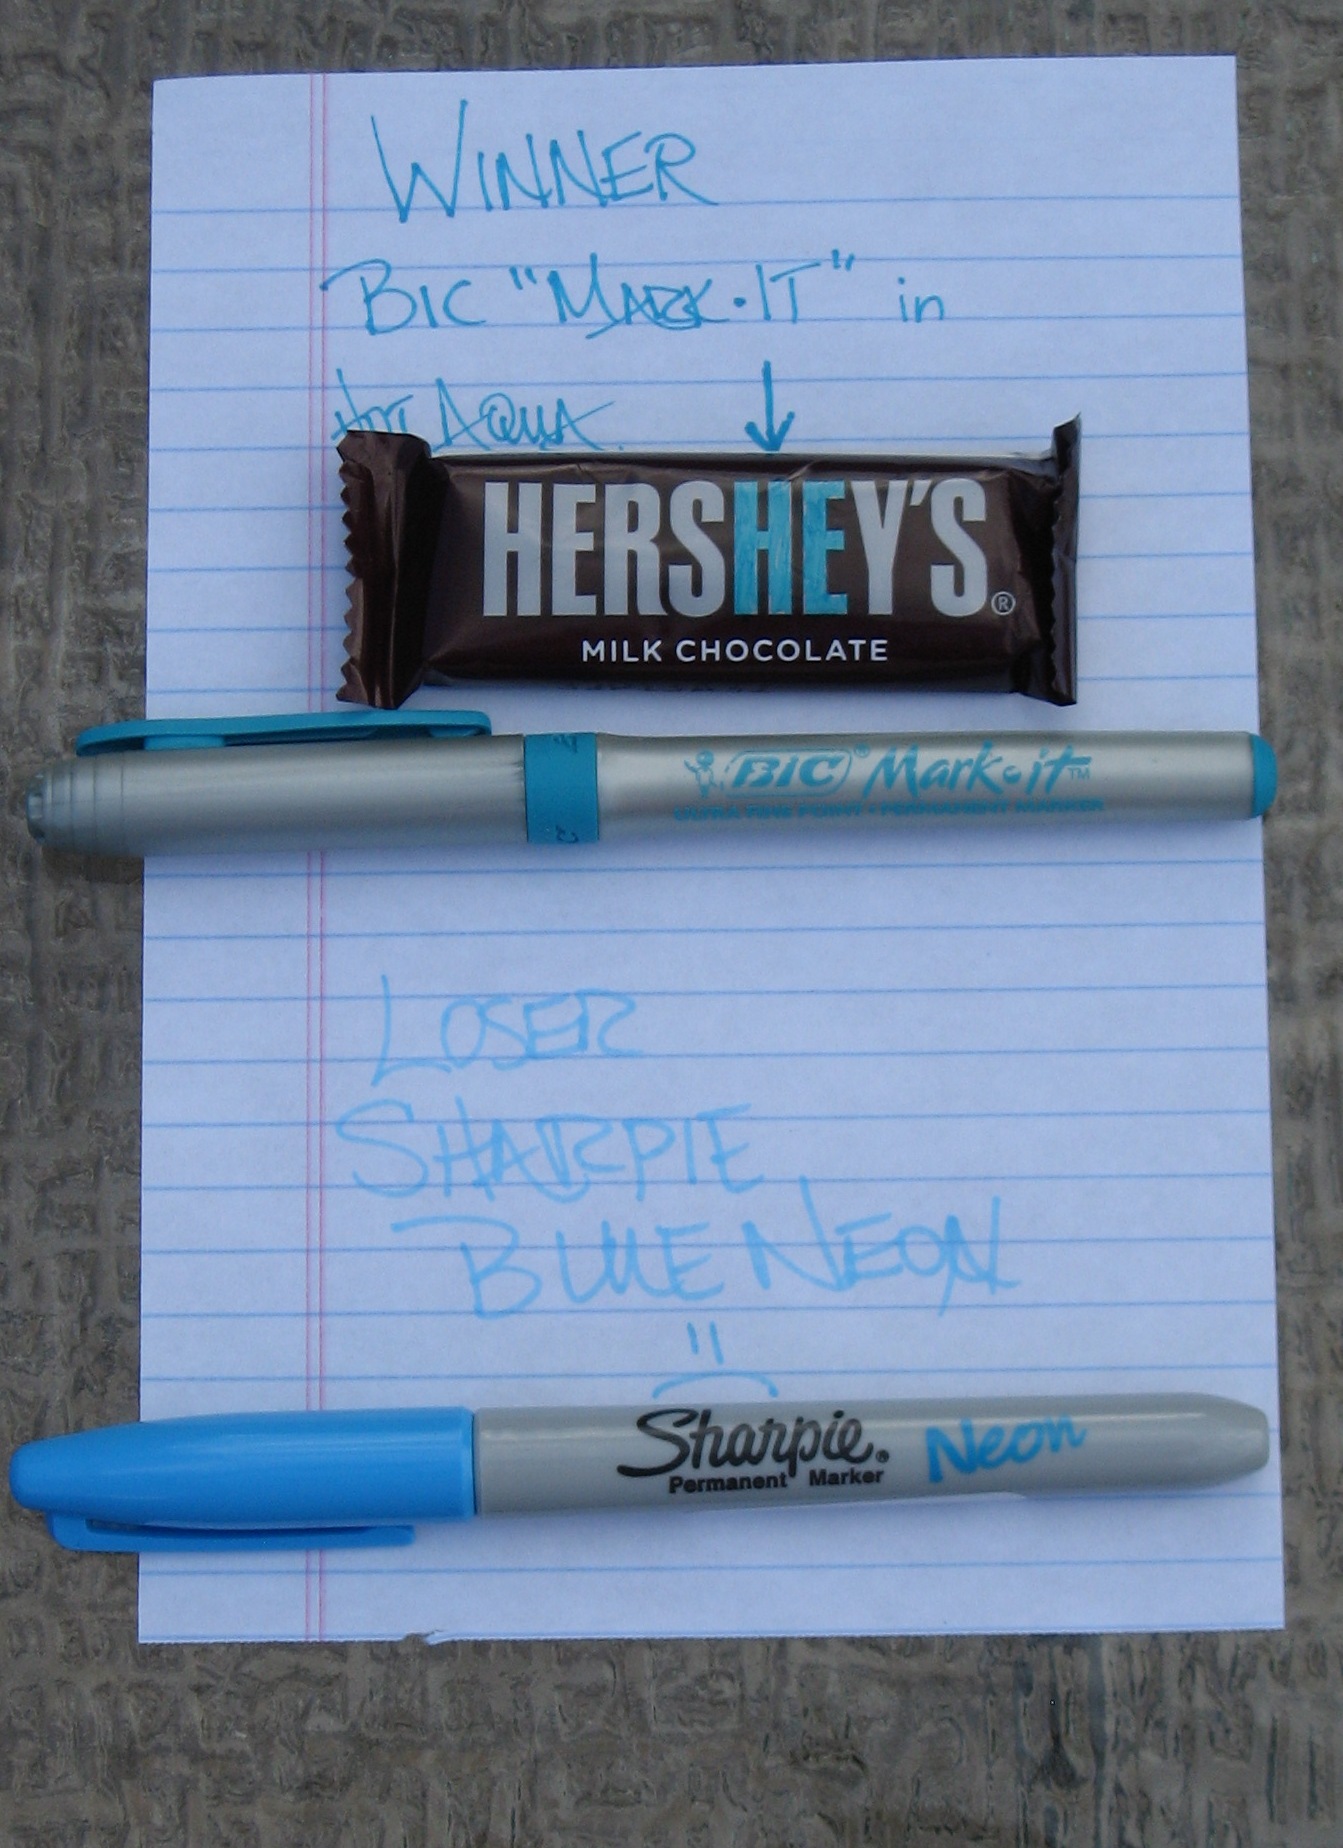 WINNER
BIC "MARK·IT" in
HOT AQUA.
HERSHEY'S®
MILK CHOCOLATE
BIC® Mark·it™
ULTRA FINE POINT · PERMANENT MARKER
LOSER
SHARPIE
BLUE NEON
Sharpie® Neon
Permanent Marker